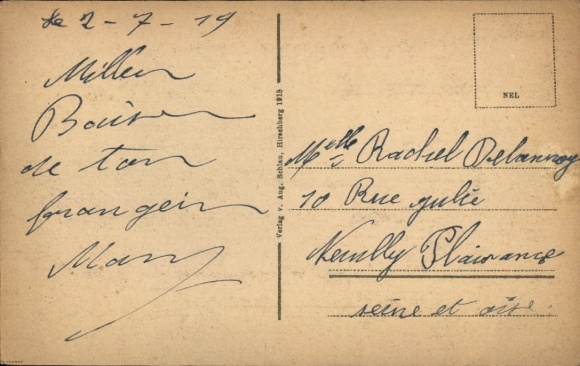 le 2-7-19
Milleu
Baiser
de ton
frangein
Marcy
Verlag v. Aug. Schlau, Hirschberg 1915
NEL
Melle Rachel Delannoy
10 Rue julie
Neuilly Plaisance
seine et oise.